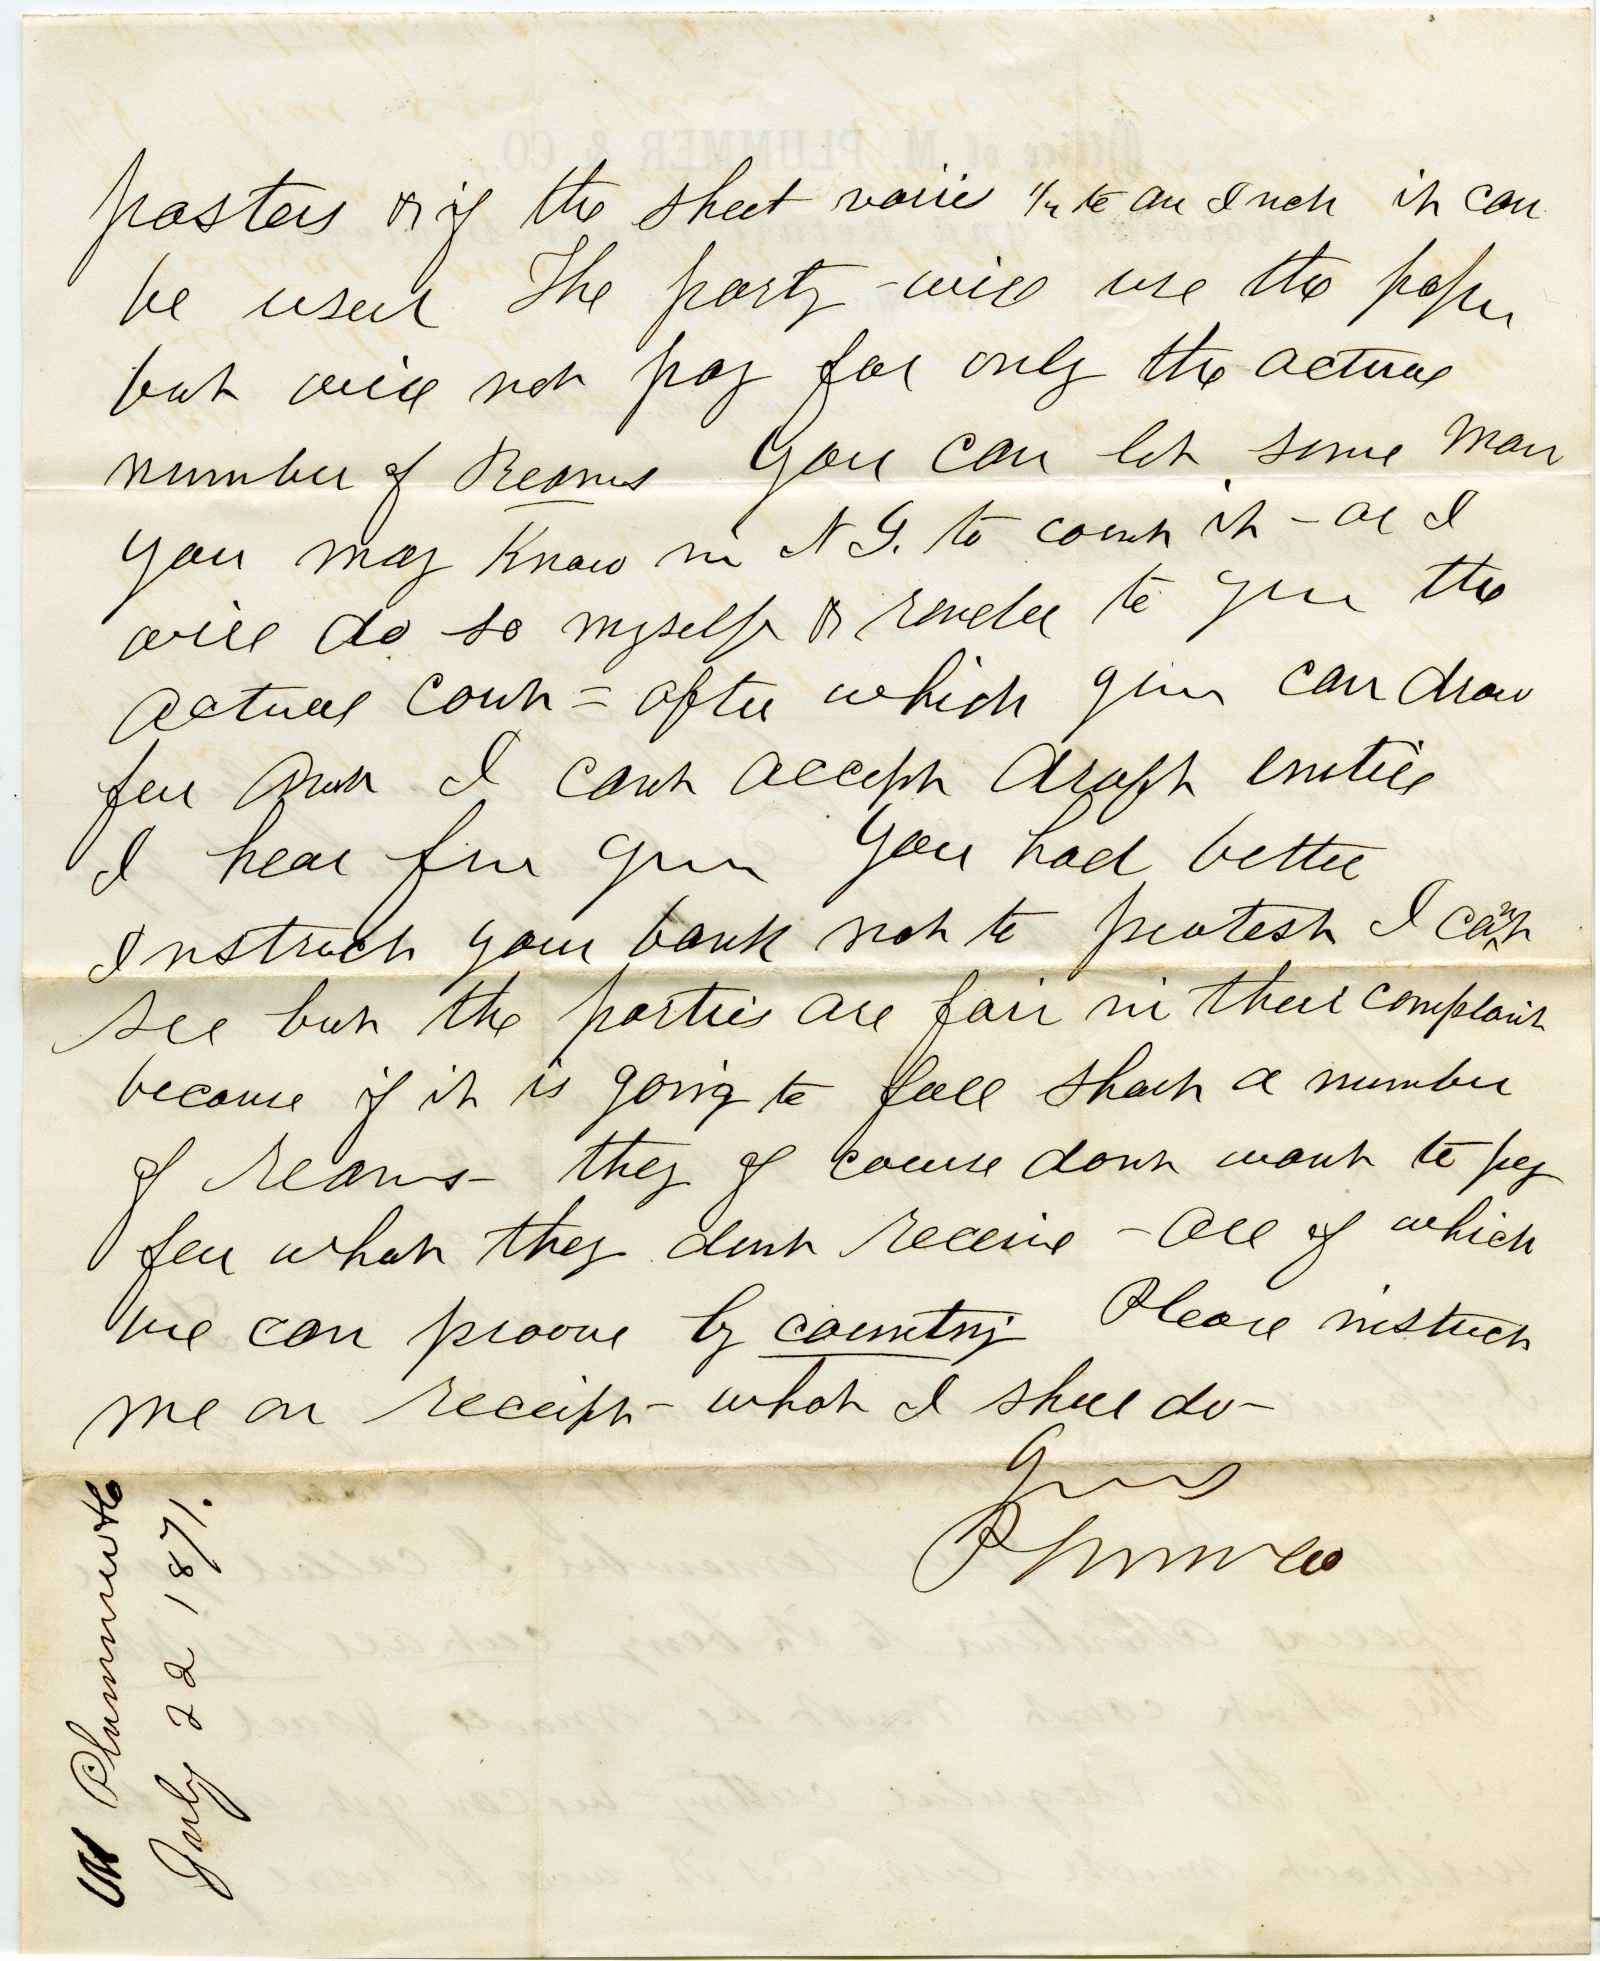 posters & if the sheet varies 1/2 to an Inch it can
be used The party - will use the paper
but will not pay for only the actual
number of Reams You can let some man
you may Know in N Y. to count it - or I
will do so myself & render to you the
actual count = after which you can draw
for Amt I cant accept draft until
I hear from you You had better
Instruct your bank not to protest I cant
see but the parties are fair in their complaint
because if it is going to fall short a number
of reams - they of course dont want to pay
for what they dont receive - All of which
we can proove by counting Please instruct
me on receipt - what I shall do -
Yours
Plummer & Co
M Plummer & Co
July 22 1871.